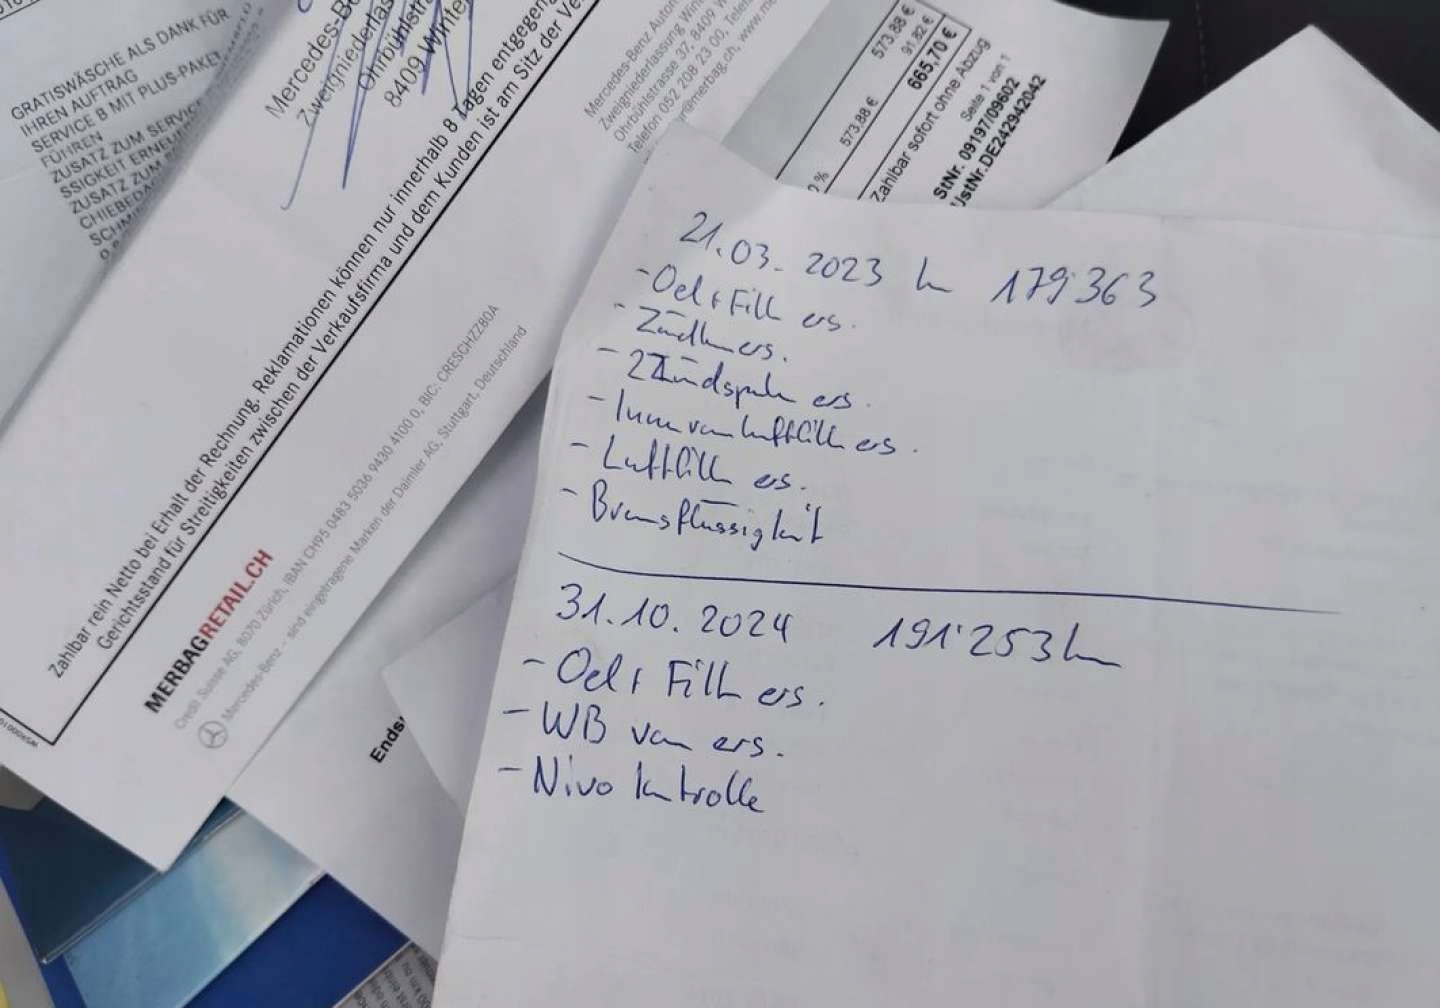 GRATISWÄSCHE ALS DANK FÜR
IHREN AUFTRAG
SERVICE B MIT PLUS-PAKET
FÜHREN
ZUSATZ ZUM SERVICE
SSIGKEIT ERNEU
ZUSATZ ZUM
CHIEBEDA
Mercedes-Be
Zweigniederlas
Ohrbühlstra
8409 Winter
Zahlbar rein Netto bei Erhalt der Rechnung. Reklamationen können nur innerhalb 8 Tagen entgegeng
Gerichtsstand für Streitigkeiten zwischen der Verkaufsfirma und dem Kunden ist am Sitz der Ve
MERBAGRETAIL.CH
Credit Suisse AG, 8070 Zürich, IBAN CH95 0483 5036 9430 4100 0, BIC: CRESCHZZ80A
Mercedes-Benz - sind eingetragene Marken der Daimler AG, Stuttgart, Deutschland
Mercedes-Benz Autom
Zweigniederlassung Wint
Ohrbühlstrasse 37, 8409 W
Telefon 052 208 23 00, Telef
@merbag.ch, www.me
573,88 €
573,88 €
91,82 €
665,70 €
Zahlbar sofort ohne Abzug
Seite 1 von 1
StNr. 09197/09602
UstNr.DE242942042
Ends
21.03.2023 km 179'363
- Oel + Filter ers.
- Zündkerzen ers.
- 2 Zündspulen ers.
- Innenraumluftfilter ers.
- Luftfilter ers.
- Bremsflüssigkeit
31.10.2024 191'253 km
- Oel + Filter ers.
- WB vorn ers.
- Nivo kontrolle